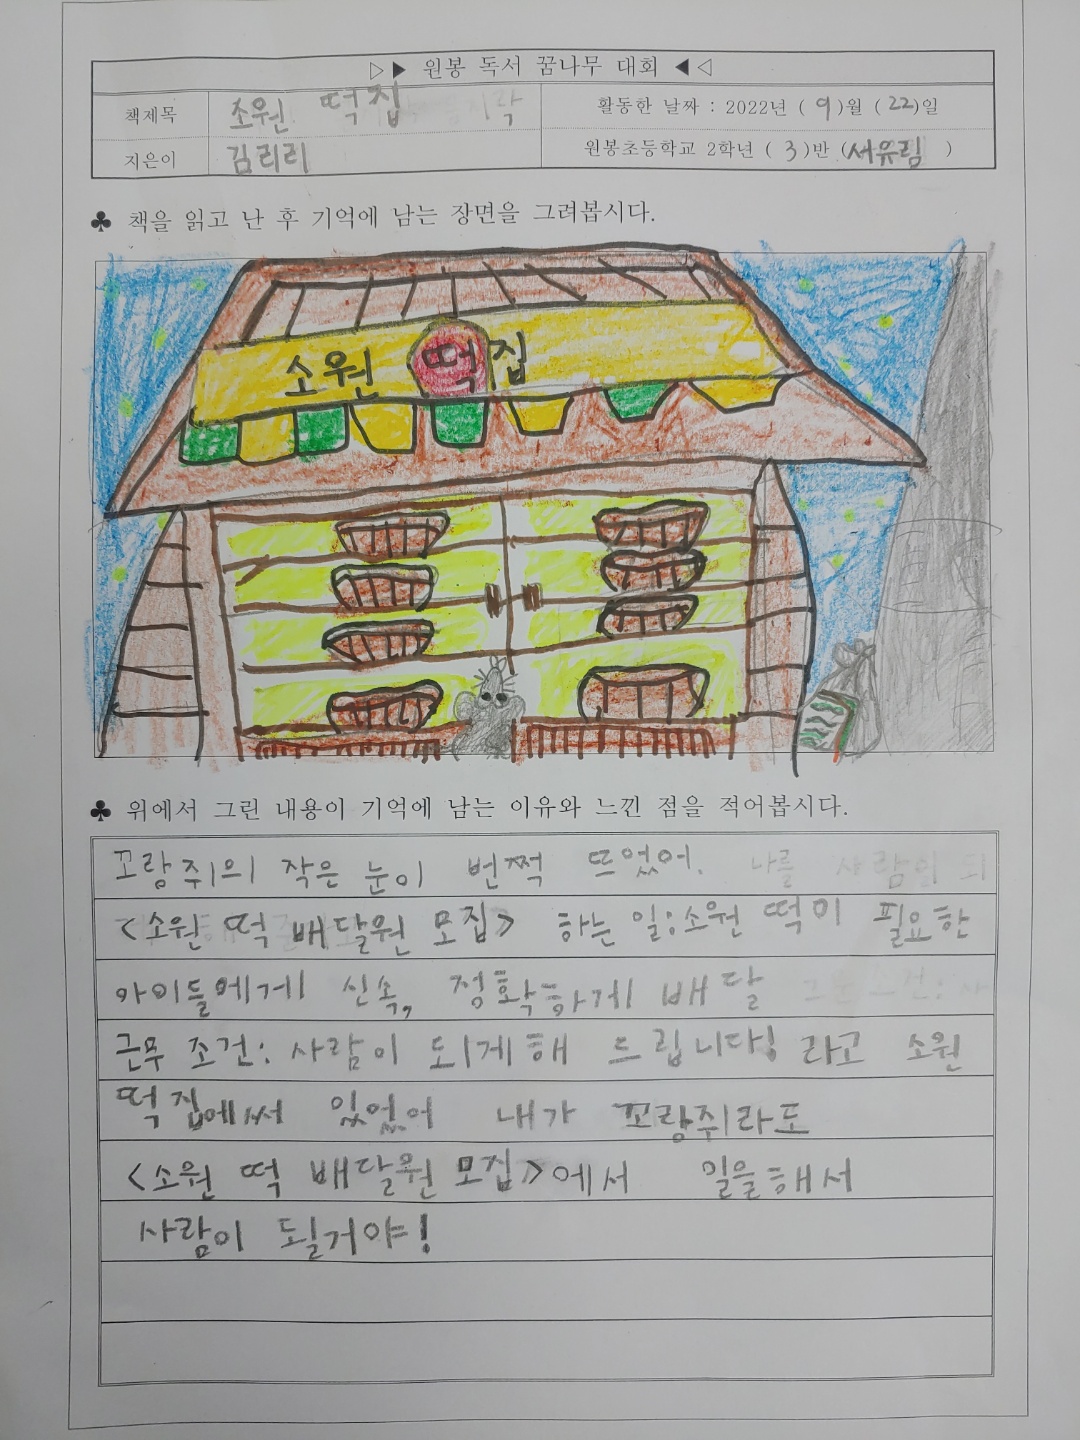 ▷▶ 원봉 독서 꿈나무 대회 ◀◁
책제목 소원 떡집 활동한 날짜 : 2022년 ( 9 )월 ( 22 )일
지은이 김리리 원봉초등학교 2학년 ( 3 )반 (서유림 )
♣ 책을 읽고 난 후 기억에 남는 장면을 그려봅시다.
소원 떡집
♣ 위에서 그린 내용이 기억에 남는 이유와 느낀 점을 적어봅시다.
꼬랑쥐의 작은 눈이 번쩍 뜨었어.
<소원 떡 배달원 모집> 하는 일:소원 떡이 필요한
아이들에게 신속, 정확하게 배달
근무 조건: 사람이 되게 해 드립니다! 라고 소원
떡집에써 있었어 내가 꼬랑쥐라도
<소원 떡 배달원 모집>에서 일을해서
사람이 될거야!